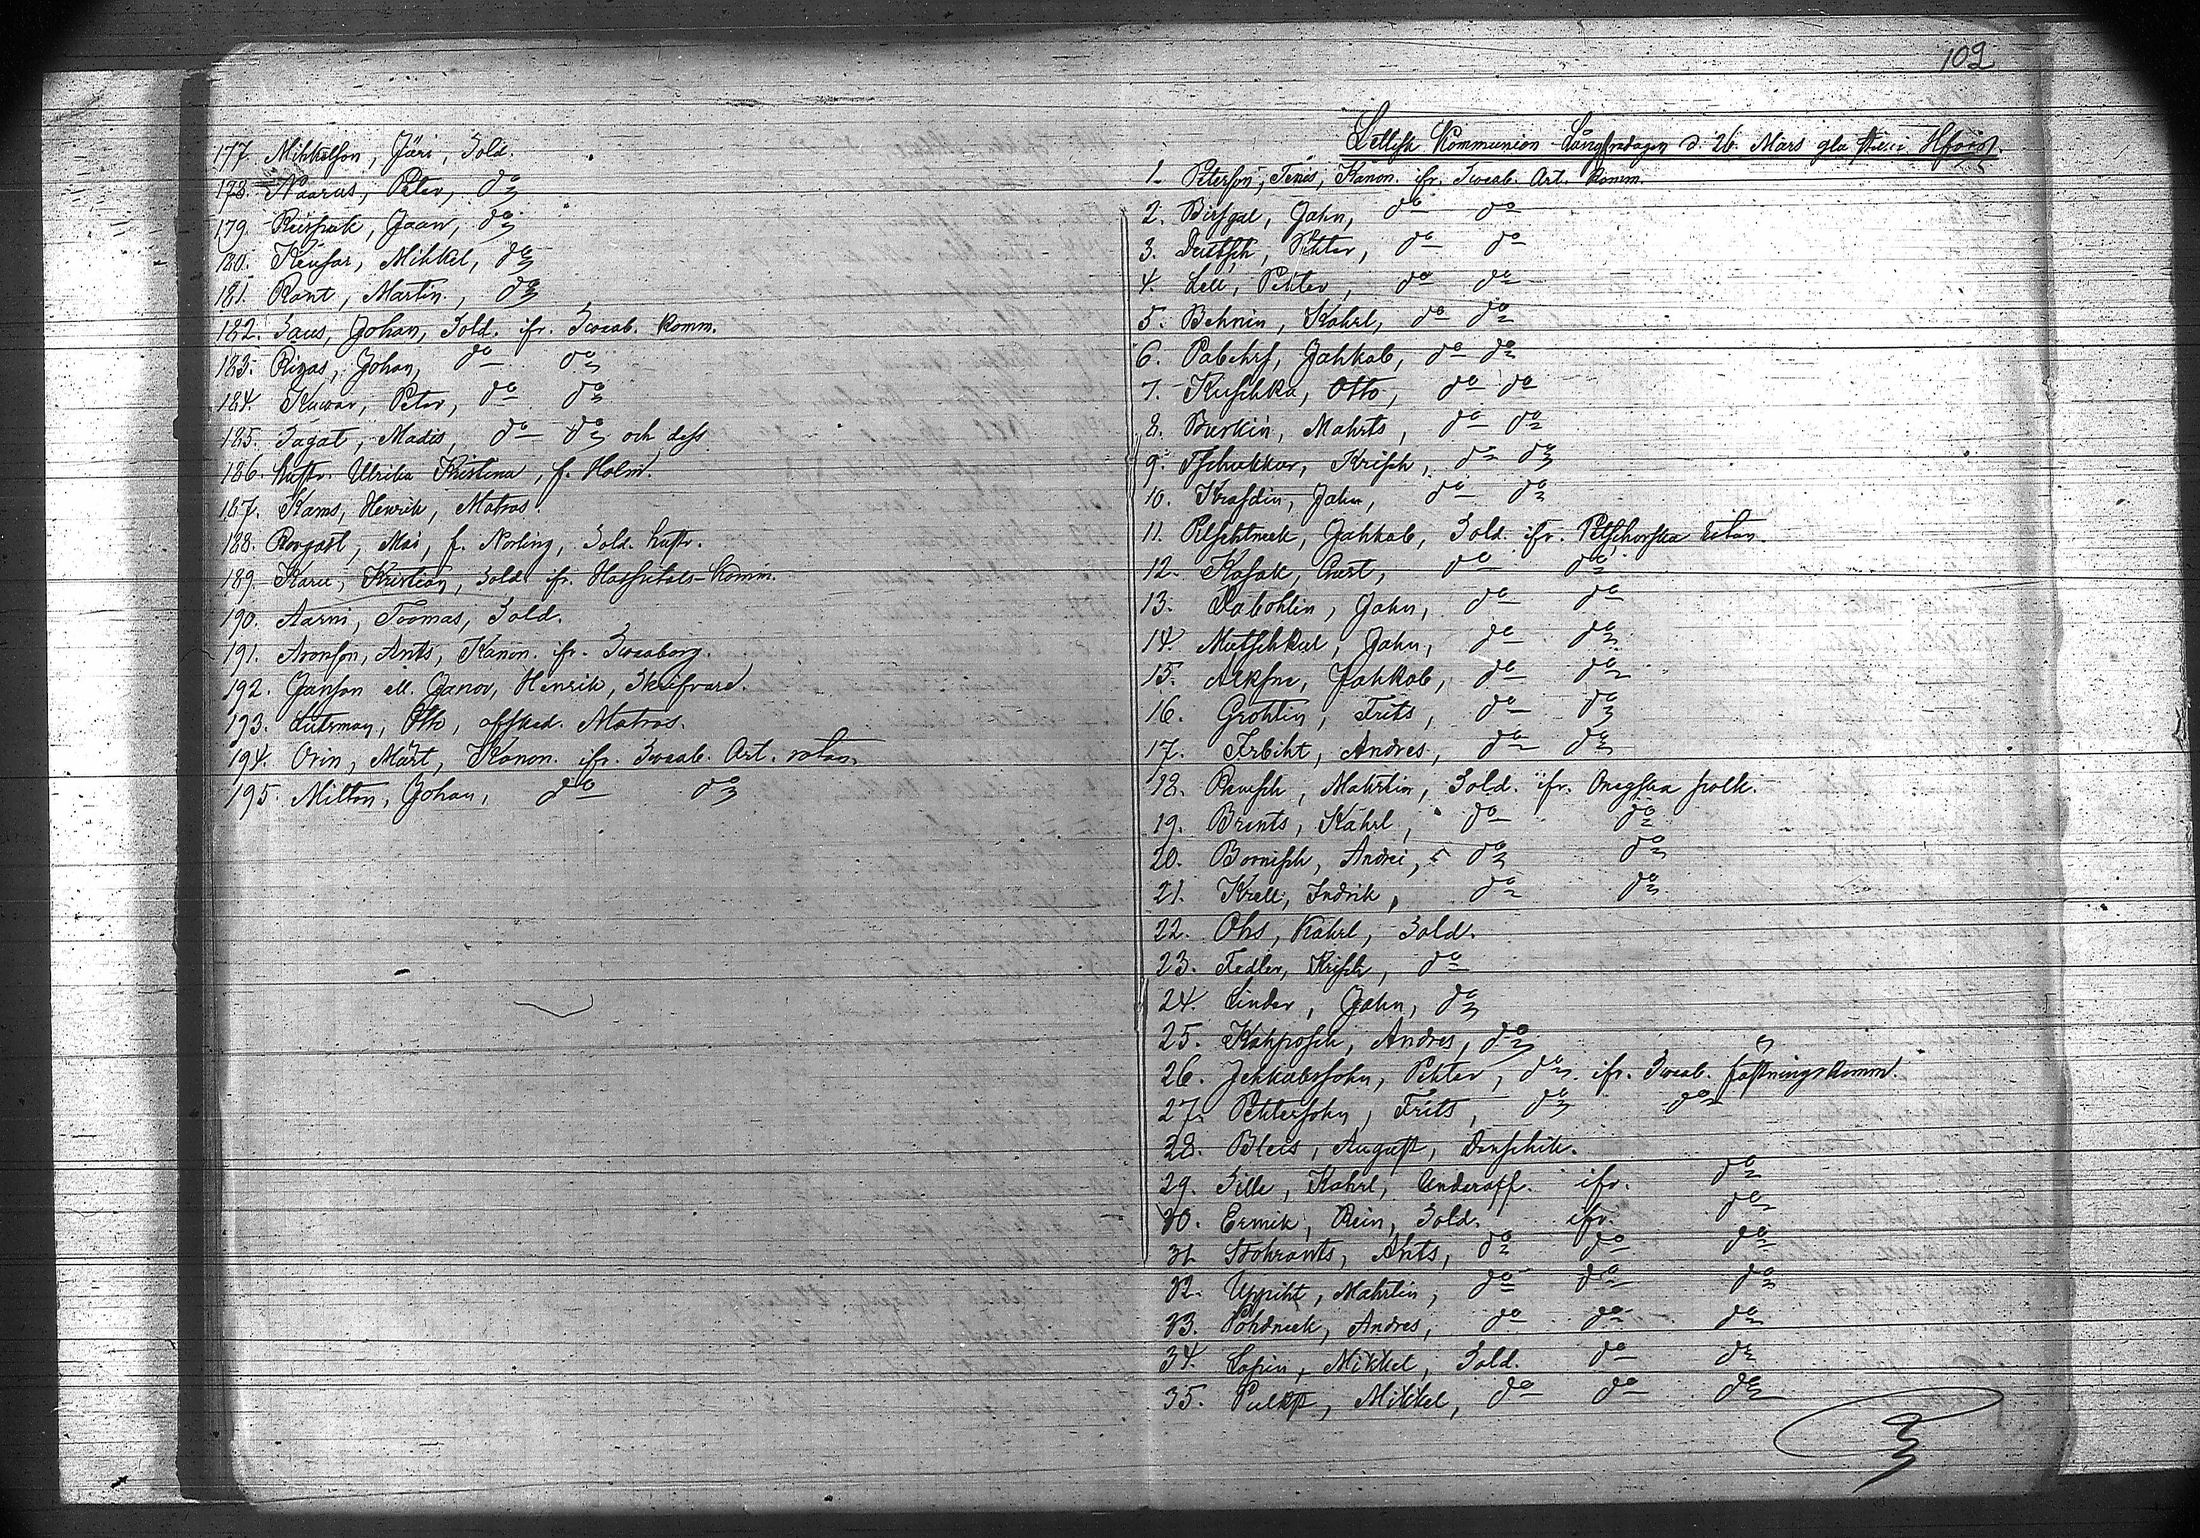 177. Mihkelson, Jüri, Sold.
178. Naarus, Peter, do
179. Jaan, do
180. Keufar, Mihkel, do
181. Rant, Martin, do
182. Saus, Johan, Sold. ifr. Sveab. komm.
183. Rigas, Johan, do do
184. Kuwar, Peter, do do
185. Sagat, Madis, do do och dess
186. hustr. Ulrika Kristina, f. Holm.
187. Kams, Henrik, Matros.
188. Mai, f. Norling, Sold. hustr.
189. Karu, Kristian, Sold. ifr. Hospitals komm.
190. Aarni, Toomas, Sold.
191. Aronson, Ants, Kanon. fr. Sveaborg.
192. Janson ell. Janov, Henrik, Skrifvare.
193. Luterman, Otto, afsked. Matros.
194. Orin, Märt, Kanon. ifr. Sveab. Art. rotan.
195. Milton, Johan, do do
102
Lettisk Kommunion Långfredagen d. 26 Mars gla i Hfors.
1. Peterson, Tenis, Kanon. ifr. Sveab. Art. komm.
2. Birsgal, Jahn, do do
3. Deutsch, Pehter, do do
4. Lell, Pehter, do do
5. Behnin, Kahrl, do do
6. Pabehrs, Jahkab, do do
7. Kuschka, Otto, do do
8. Burkin, Mahrts, do do
9. Tschukkur, Krisch, do do
10. Krasdin, Jahn, do do
11. Jahkab, Sold. ifr. Petschorska
12. Kasak, do do
13. Jahn, do do
14. Mutschkul, Jahn, do do
15. Alksne, Jahkab, do do
16. Grohlin, Frits, do do
17. Irbiht, Andres, do do
18. Mahrtin, Sold. ifr. Onegska polk.
19. Brents, Kahrl, do do
20. Bornisch, Andrei, do do
21. Krell, Indrik, do do
22. Ohs, Kahrl, Sold.
23. Fedler, Krisch, do
24. Linder, Jahn, do
25. Kahposch, Andres, do
26. Jehkabsohn, Pehter, do ifr. Sveab. fästningskomm.
27. Pehtersohn, Frits, do do
28. Bleis, August, Denschik.
29. Sille, Kahrl, Underoff. ifr. do
30. Ermik, Rein, Sold. ifr. do
31. Stohrants, Ants, do do do
32. Uppiht, Mahrtin, do do do
33. Pohdneek, Andres, do do do
34. Lapin, Mikkel, Sold. do do
35. Pulkst, Mikkel, do do do